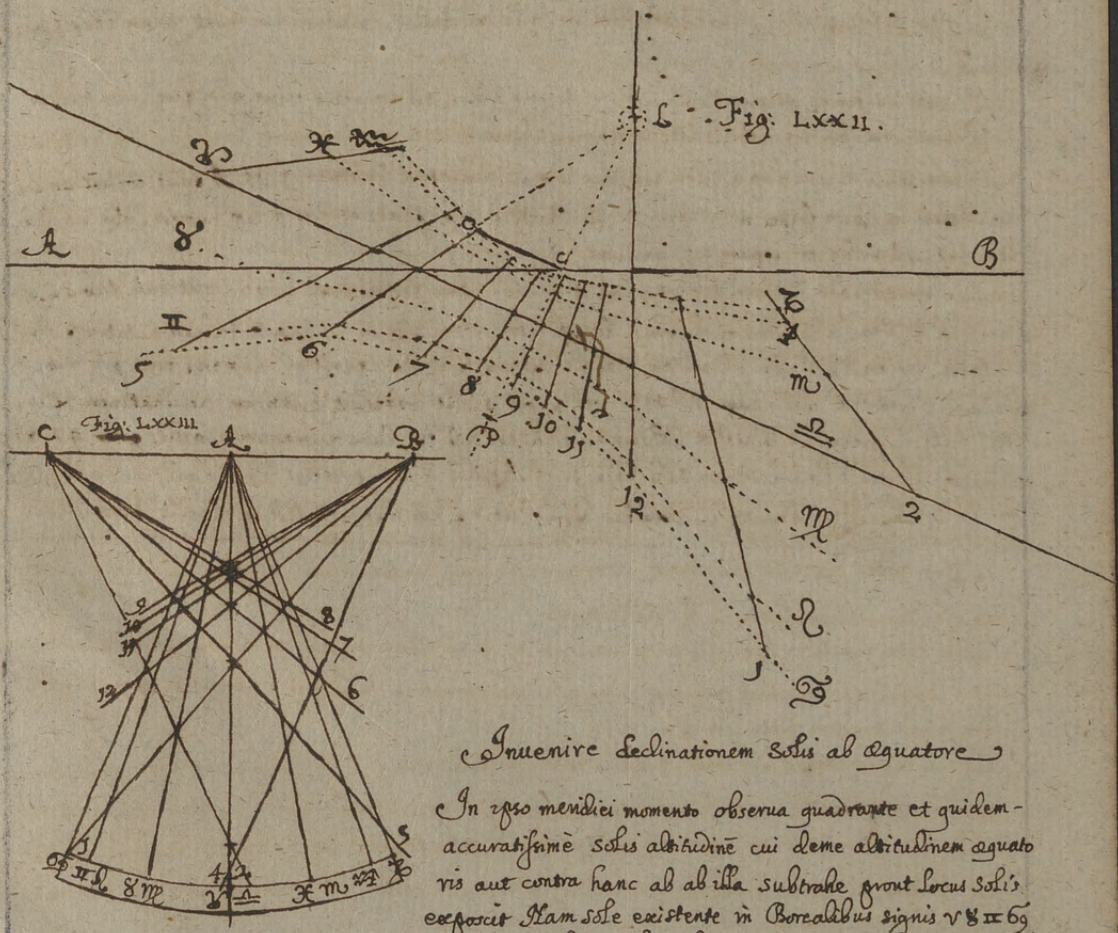 L Fig: LXXII.
♑ ♓ ♒
D
A ♉ C B
♊
5 6 7 8 9 10 11 12 1 2
P
♑
♐
♏
♎
♍
♌
♋
Fig: LXXIII
C A B
9 8
10 7
11
12 6
5
♋ ♊ ♌ ♉ ♍ ♈ ♎ ♓ ♏ ♒ ♐ ♑
Invenire declinationem Solis ab æquatore
In ipso meridiei momento observa quadrante et quidem-
accuratissimè Solis altitudinē cui deme altitudinem æquato
ris aut contra hanc ab ab illa subtrahe prout Locus Solis
exposcit Nam sole existente in Borealibus signis ♈ ♉ ♊ ♋